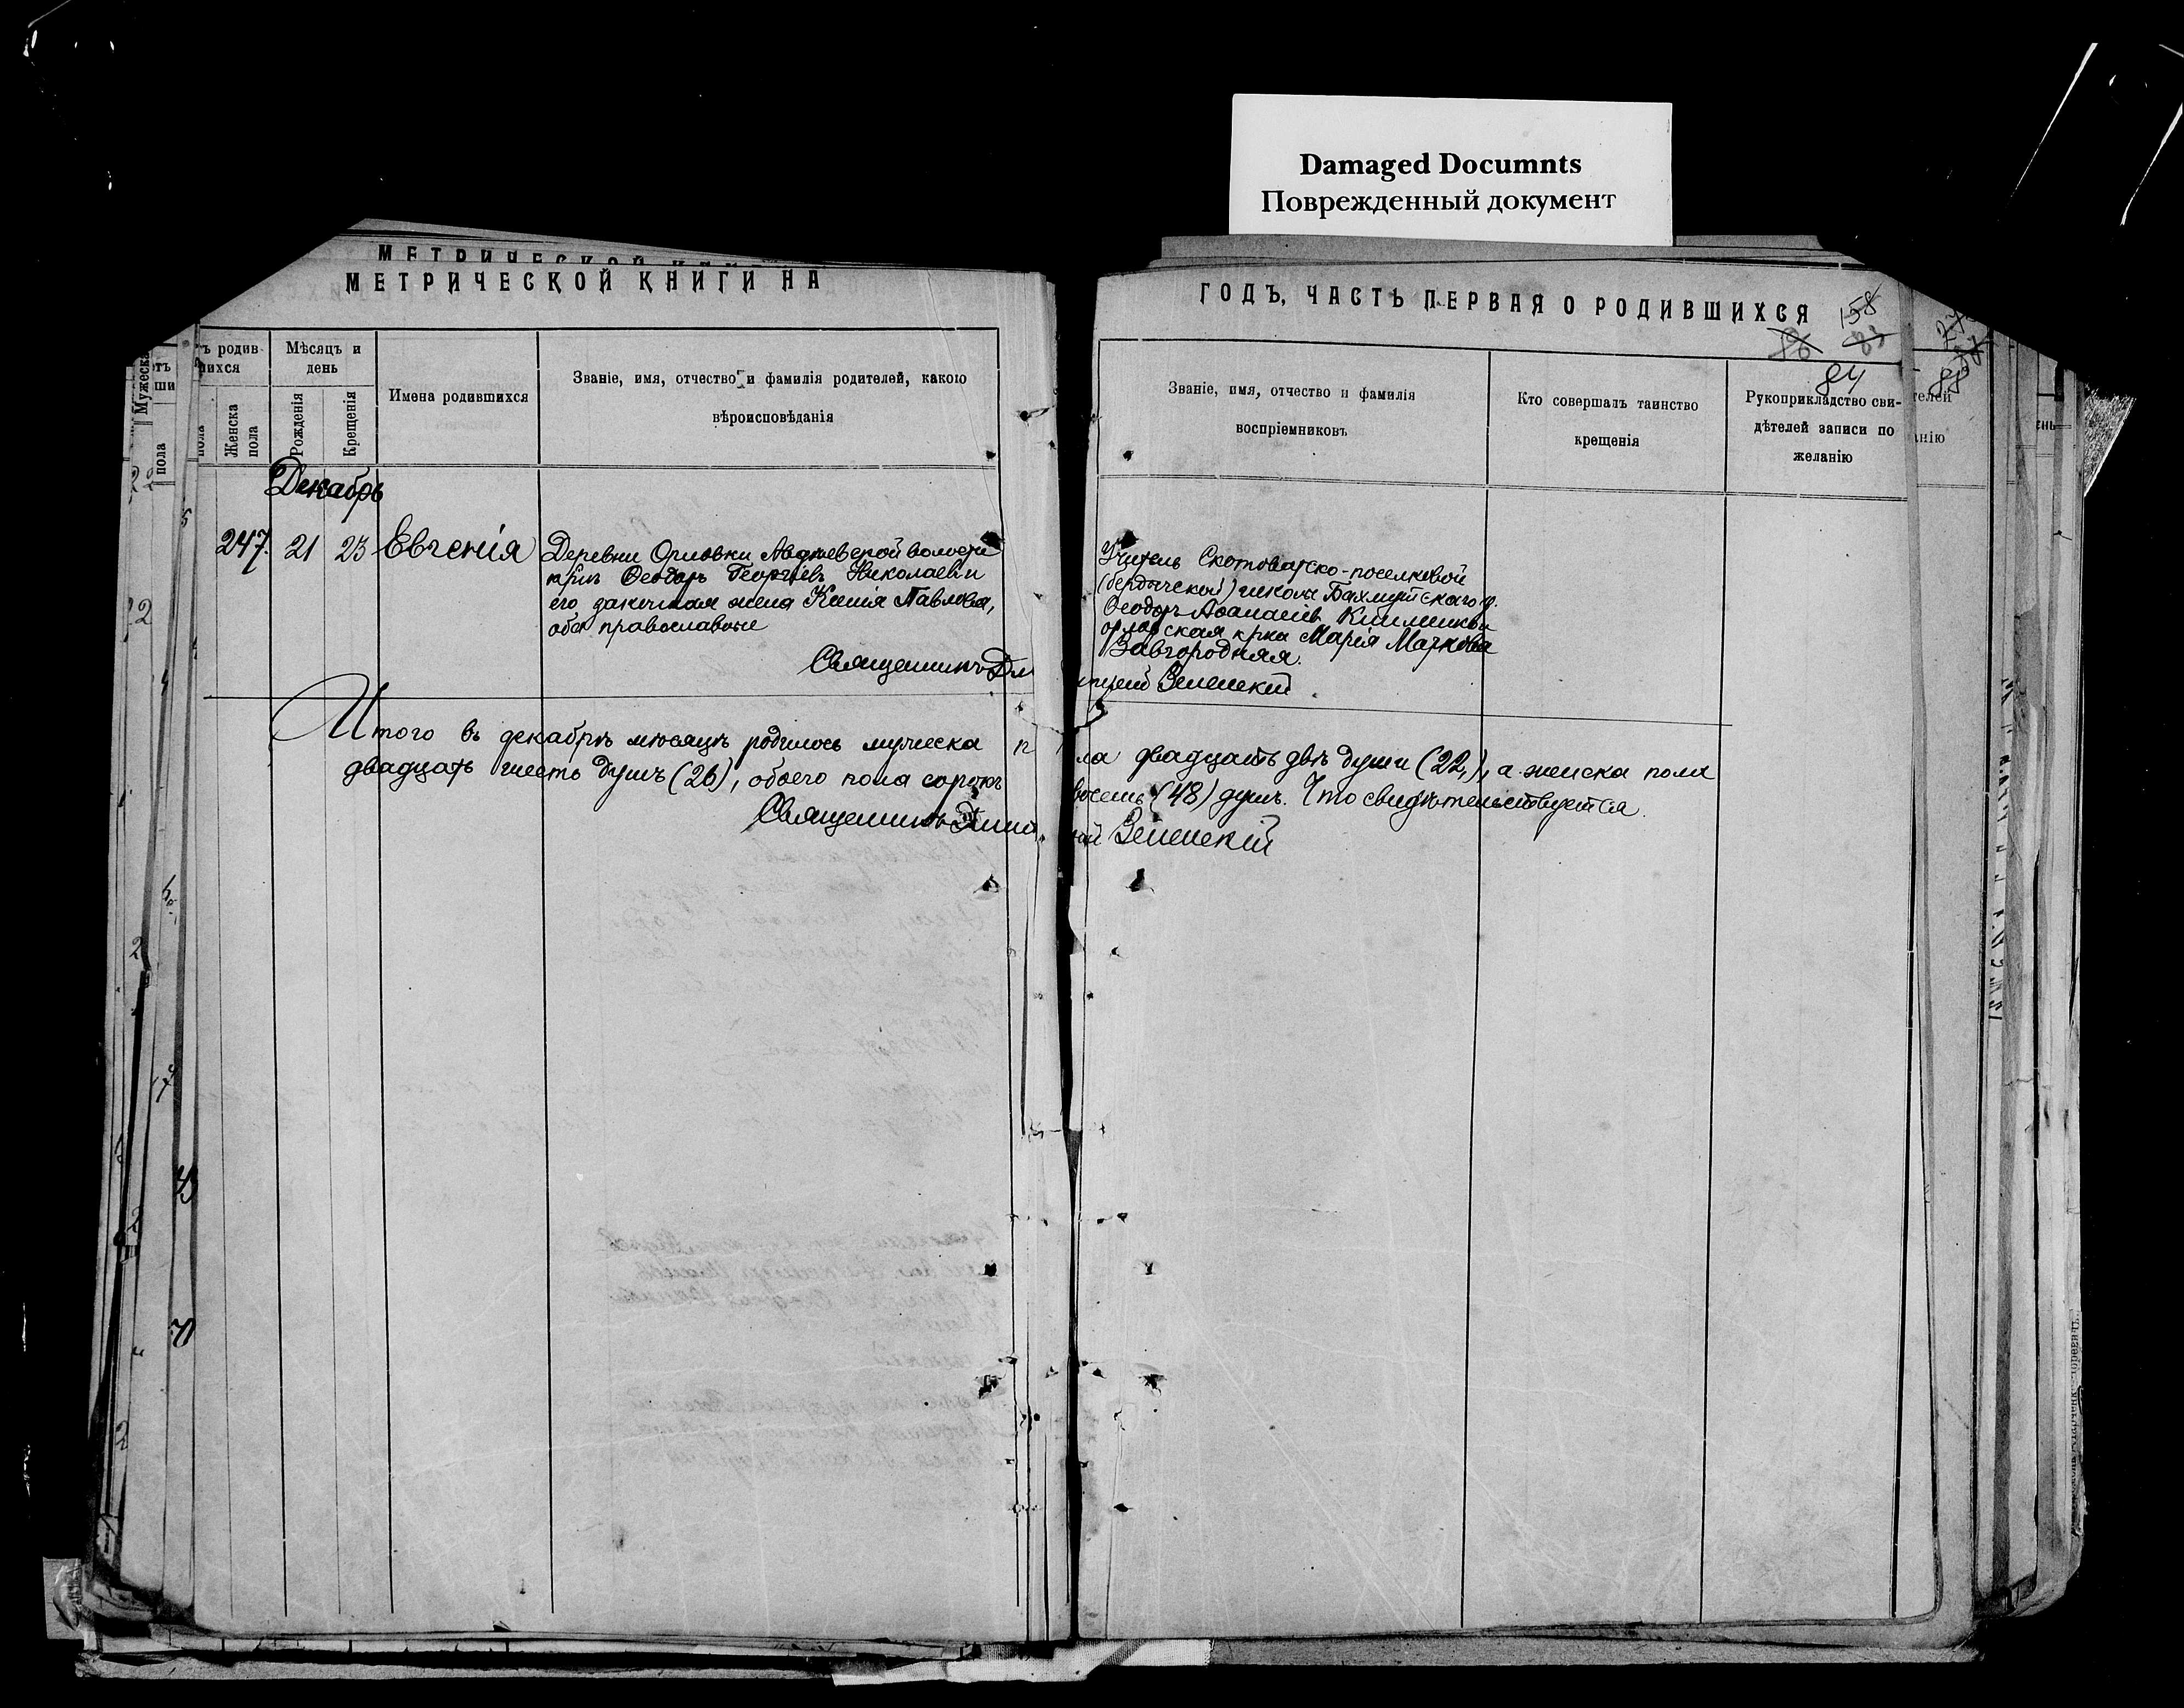 Damaged Documnts
Поврежденный документ
МЕТРИЧЕСКОЙ КНИГИ НА
ГОДЪ, ЧАСТЬ ПЕРВАЯ О РОДИВШИХСЯ
158
84
ъ родив
шихся
Женска
пола
Мѣсяцъ и
день
Рожденія
Крещенія
Имена родившихся
Званіе, имя, отчество и фамилія родителей, какого
вѣроисповѣданія
Званіе, имя, отчество и фамилія
воспріемниковъ
Кто совершалъ таинство
крещенія
Рукоприкладство сви-
дѣтелей записи по
желанію
Декабрь
247. 21 23 Евгенія
Деревни Орловки Авдѣевской волости
крнъ Ѳеодоръ Георгіевъ Николаев и
его законная жена Ксенія Павлова,
оба православные
Учитель Скотоватско-поселковой
школы Бахмутскаго у.
Ѳеодоръ Аѳанасіевъ
орловская крка Марія Маркова
Завгородняя.
Священникъ Димитрій Зеленскій
Итого въ декабрѣ мѣсяцѣ родилось мужеска пола двадцать двѣ души (22), а женска пола
двадцать шесть душъ (26), обоего пола сорокъ восемь (48) душъ. Что свидѣтельствуется.
Священникъ Димитрій Зеленскій